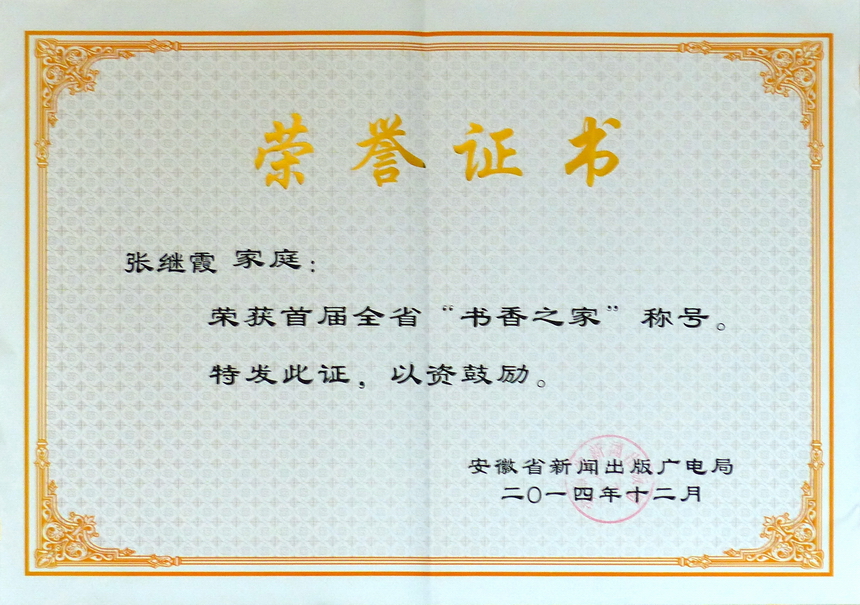 荣誉证书
张继霞 家庭：
荣获首届全省“书香之家”称号。
特发此证，以资鼓励。
安徽省新闻出版广电局
二〇一四年十二月